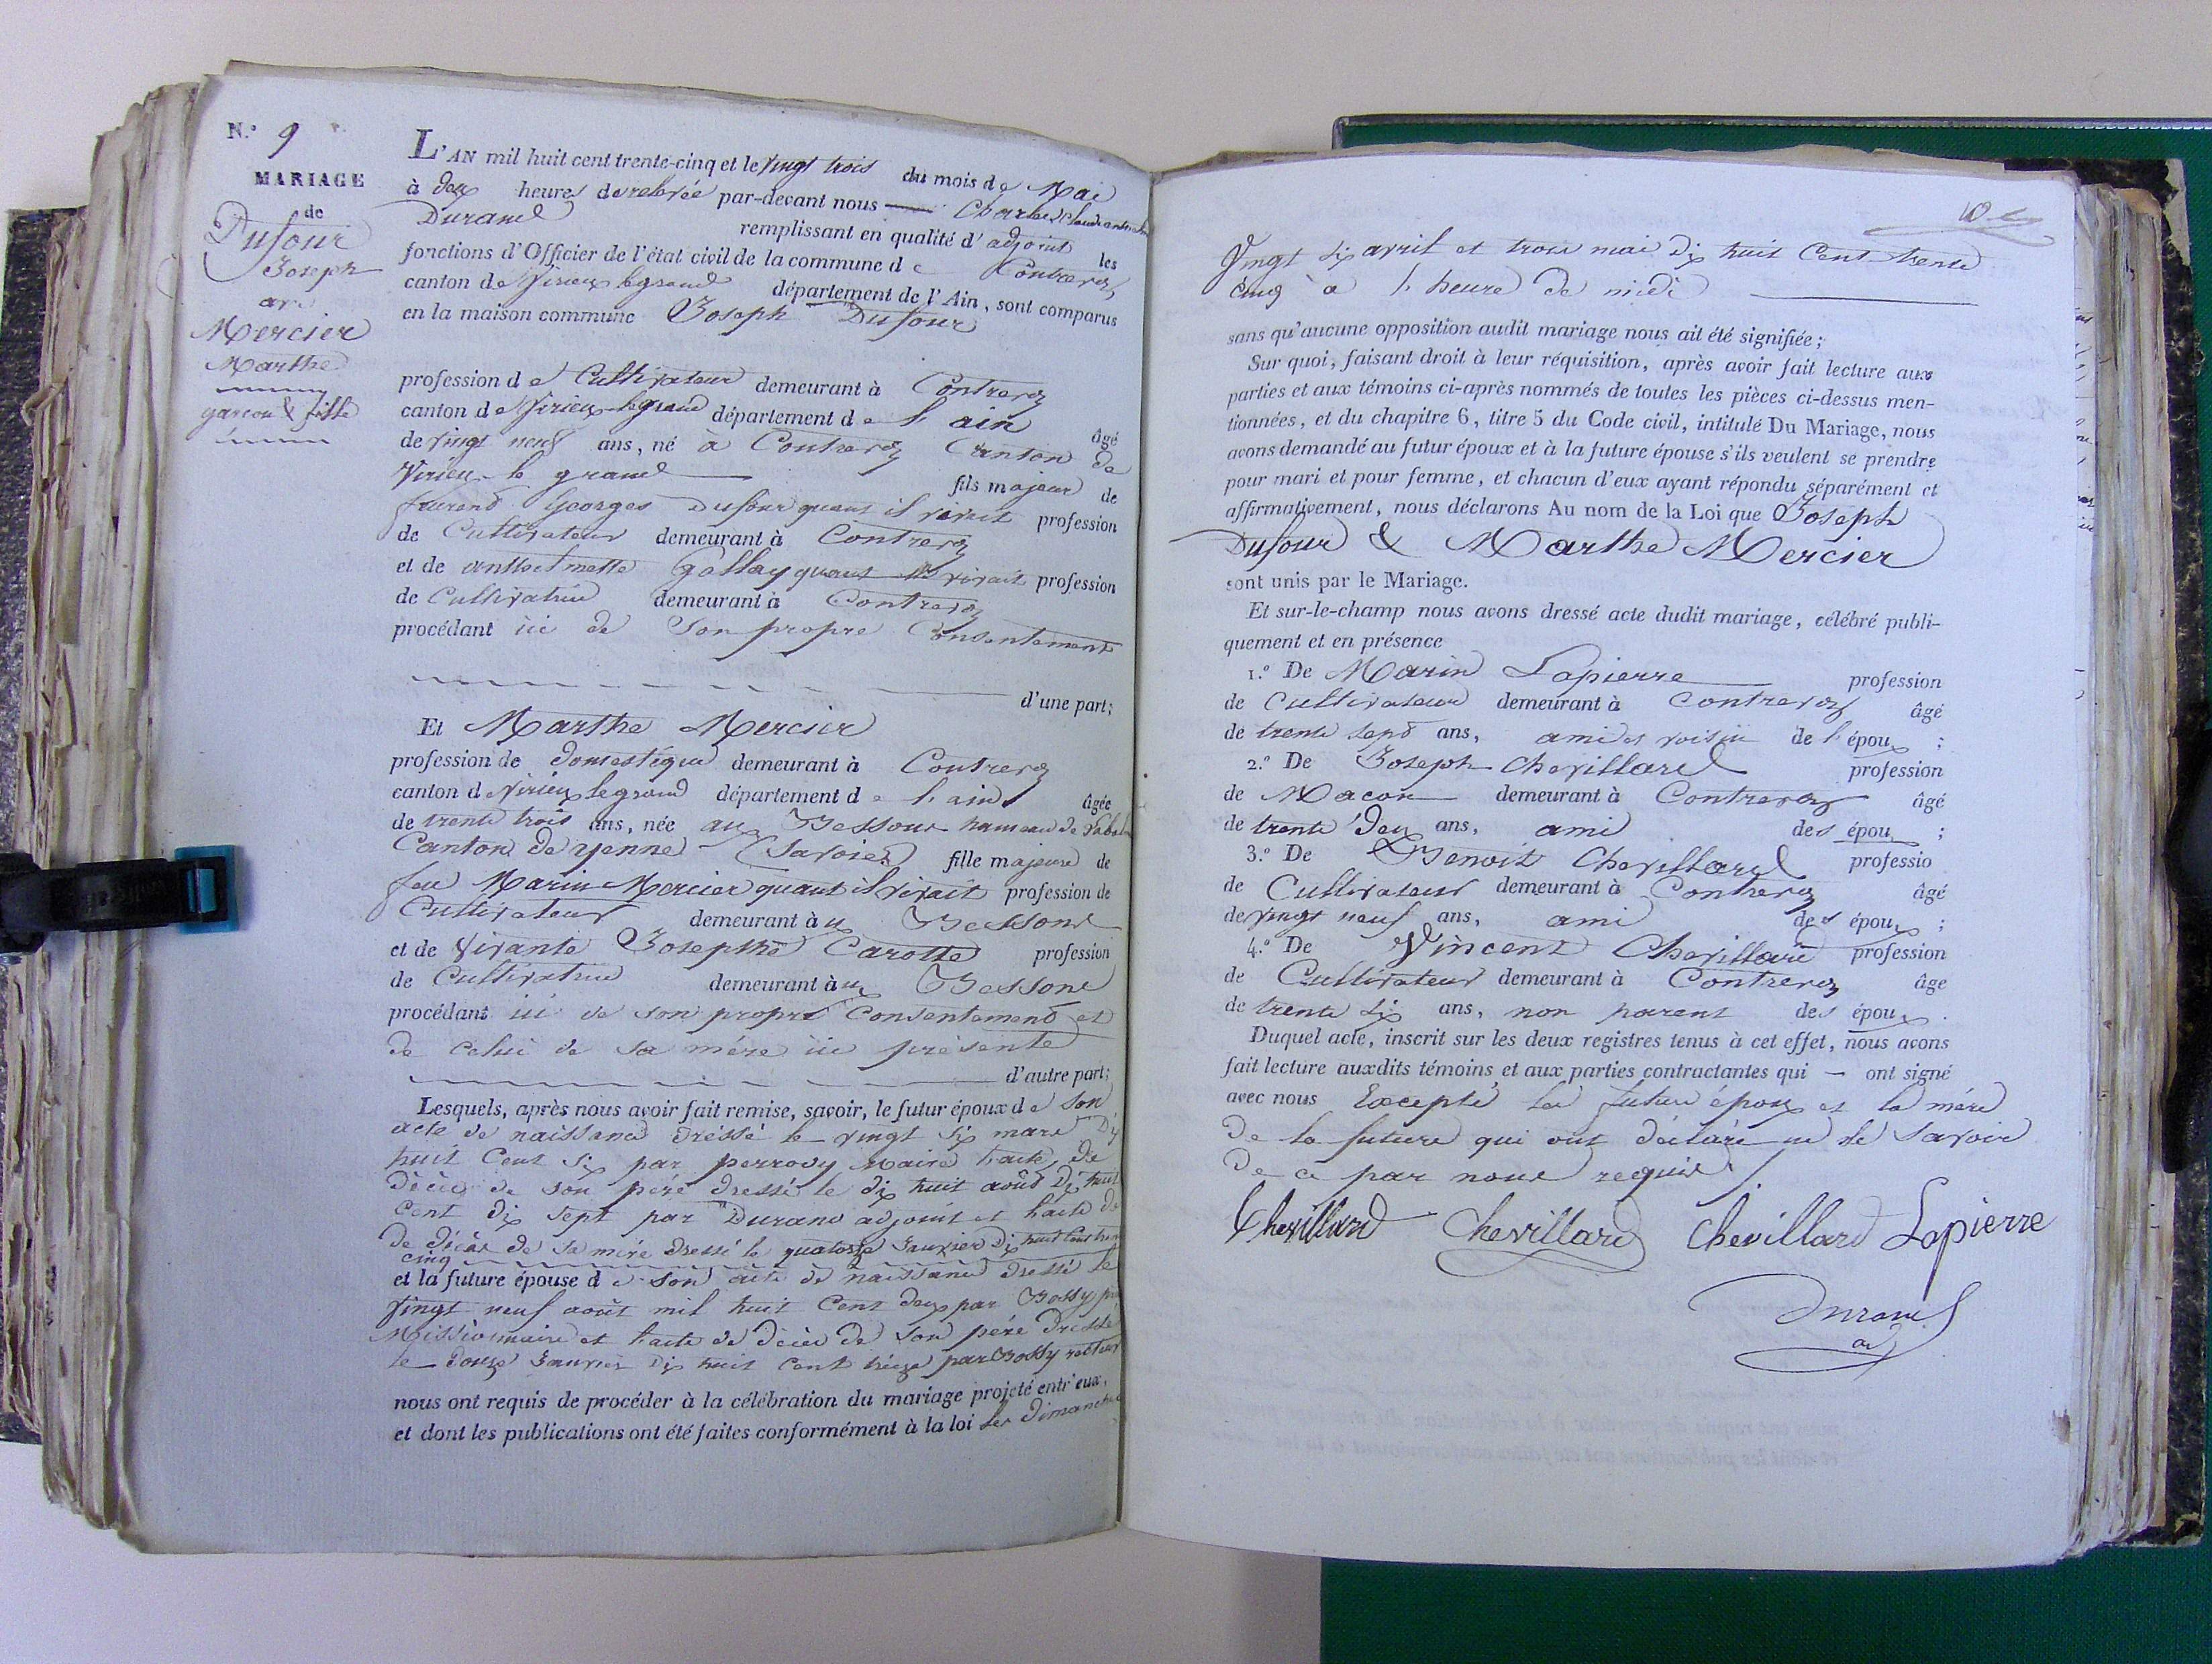 N.° 9
MARIAGE
de
Dufour
Joseph
avec
Mercier
Marthe
garcon & fille
L'AN mil huit cent trente-cinq et le vingt trois du mois de Mai
à deux heures de relevée par-devant nous Charles Claude
Durand remplissant en qualité d'adjoint les
fonctions d'Officier de l'état civil de la commune de Contrevoz
canton de Virieux le grand département de l'Ain, sont comparus
en la maison commune Joseph Dufour
profession de Cultivateur demeurant à Contrevoz
canton de Virieux le grand département de l'ain âgé
de vingt neuf ans, né à Contrevoz Canton de
Virieu le grand fils majeur de
Georges Dufour quant il vivait profession
de Cultivateur demeurant à Contrevoz
et de anthelmette Gallay quant vivait profession
de Cultivatrice demeurant à Contrevoz
procédant ici de Son propre Consentement
d'une part;
Et Marthe Mercier
profession de domestique demeurant à Contrevoz
canton de Virieux le grand département de l'ain âgée
de trente trois ans, née aux Bessons hameau de
Canton de yenne (Savoie) fille majeure de
feu Marin Mercier quant il vivait profession de
Cultivateur demeurant à ux Bessons
et de Vivante Josephte Carotte profession
de Cultivatrice demeurant à ux Bessons
procédant ici de son propre Consentement et
de celui de sa mére ici présente
d'autre part;
Lesquels, après nous avoir fait remise, savoir, le futur époux de son
acte de naissance dréssé le vingt six mars Dix
huit Cent Six par perrozy Maire l'acte de
décès de son pére dressé le dix huit août Dix huit
Cent dix sept par Durand adjoint et l'acte de
de décès de sa mére dressé le quatorze Janvier Dix huit Cent trente
cinq
et la future épouse de son acte de naissance dressé le
Vingt neuf août mil huit Cent deux par Bossy
Missionnaire et l'acte de décès de son pére Dressé
le douze Janvier Dix huit Cent treize par Bossy recteur
nous ont requis de procéder à la célébration du mariage projeté entr'eux,
et dont les publications ont été faites conformément à la loi les dimanches
Vingt six avril et trois mai dix huit Cent trente
cinq à l'heure de midi
sans qu'aucune opposition audit mariage nous ait été signifiée;
Sur quoi, faisant droit à leur réquisition, après avoir fait lecture aux
parties et aux témoins ci-après nommés de toutes les pièces ci-dessus men-
tionnées, et du chapitre 6, titre 5 du Code civil, intitulé Du Mariage, nous
avons demandé au futur époux et à la future épouse s'ils veulent se prendre
pour mari et pour femme, et chacun d'eux ayant répondu séparément et
affirmativement, nous déclarons Au nom de la Loi que Joseph
Dufour & Marthe Mercier
sont unis par le Mariage.
Et sur-le-champ nous avons dressé acte dudit mariage, célébré publi-
quement et en présence
1.° De Marin Lapierre profession
de Cultivateur demeurant à Contrevoz âgé
de trente sept ans, ami et voisin de l'époux ;
2.° De Joseph Chevillard profession
de Macon demeurant à Contrevoz âgé
de trente deux ans, ami des époux ;
3.° De Benoit Chevillard professio
de Cultivateur demeurant à Contrevoz âgé
de vingt neuf ans, ami des époux ;
4.° De Vincent Chevillard profession
de Cultivateur demeurant à Contrevoz âgé
de trente six ans, non parent des époux .
Duquel acte, inscrit sur les deux registres tenus à cet effet, nous avons
fait lecture auxdits témoins et aux parties contractantes qui — ont signé
avec nous Excepté les futurs époux et la mére
de la future qui ont déclaré ne le Savoir
de ce par nous requis
Chevillard Chevillard Chevillard Lapierre
Durand
adj